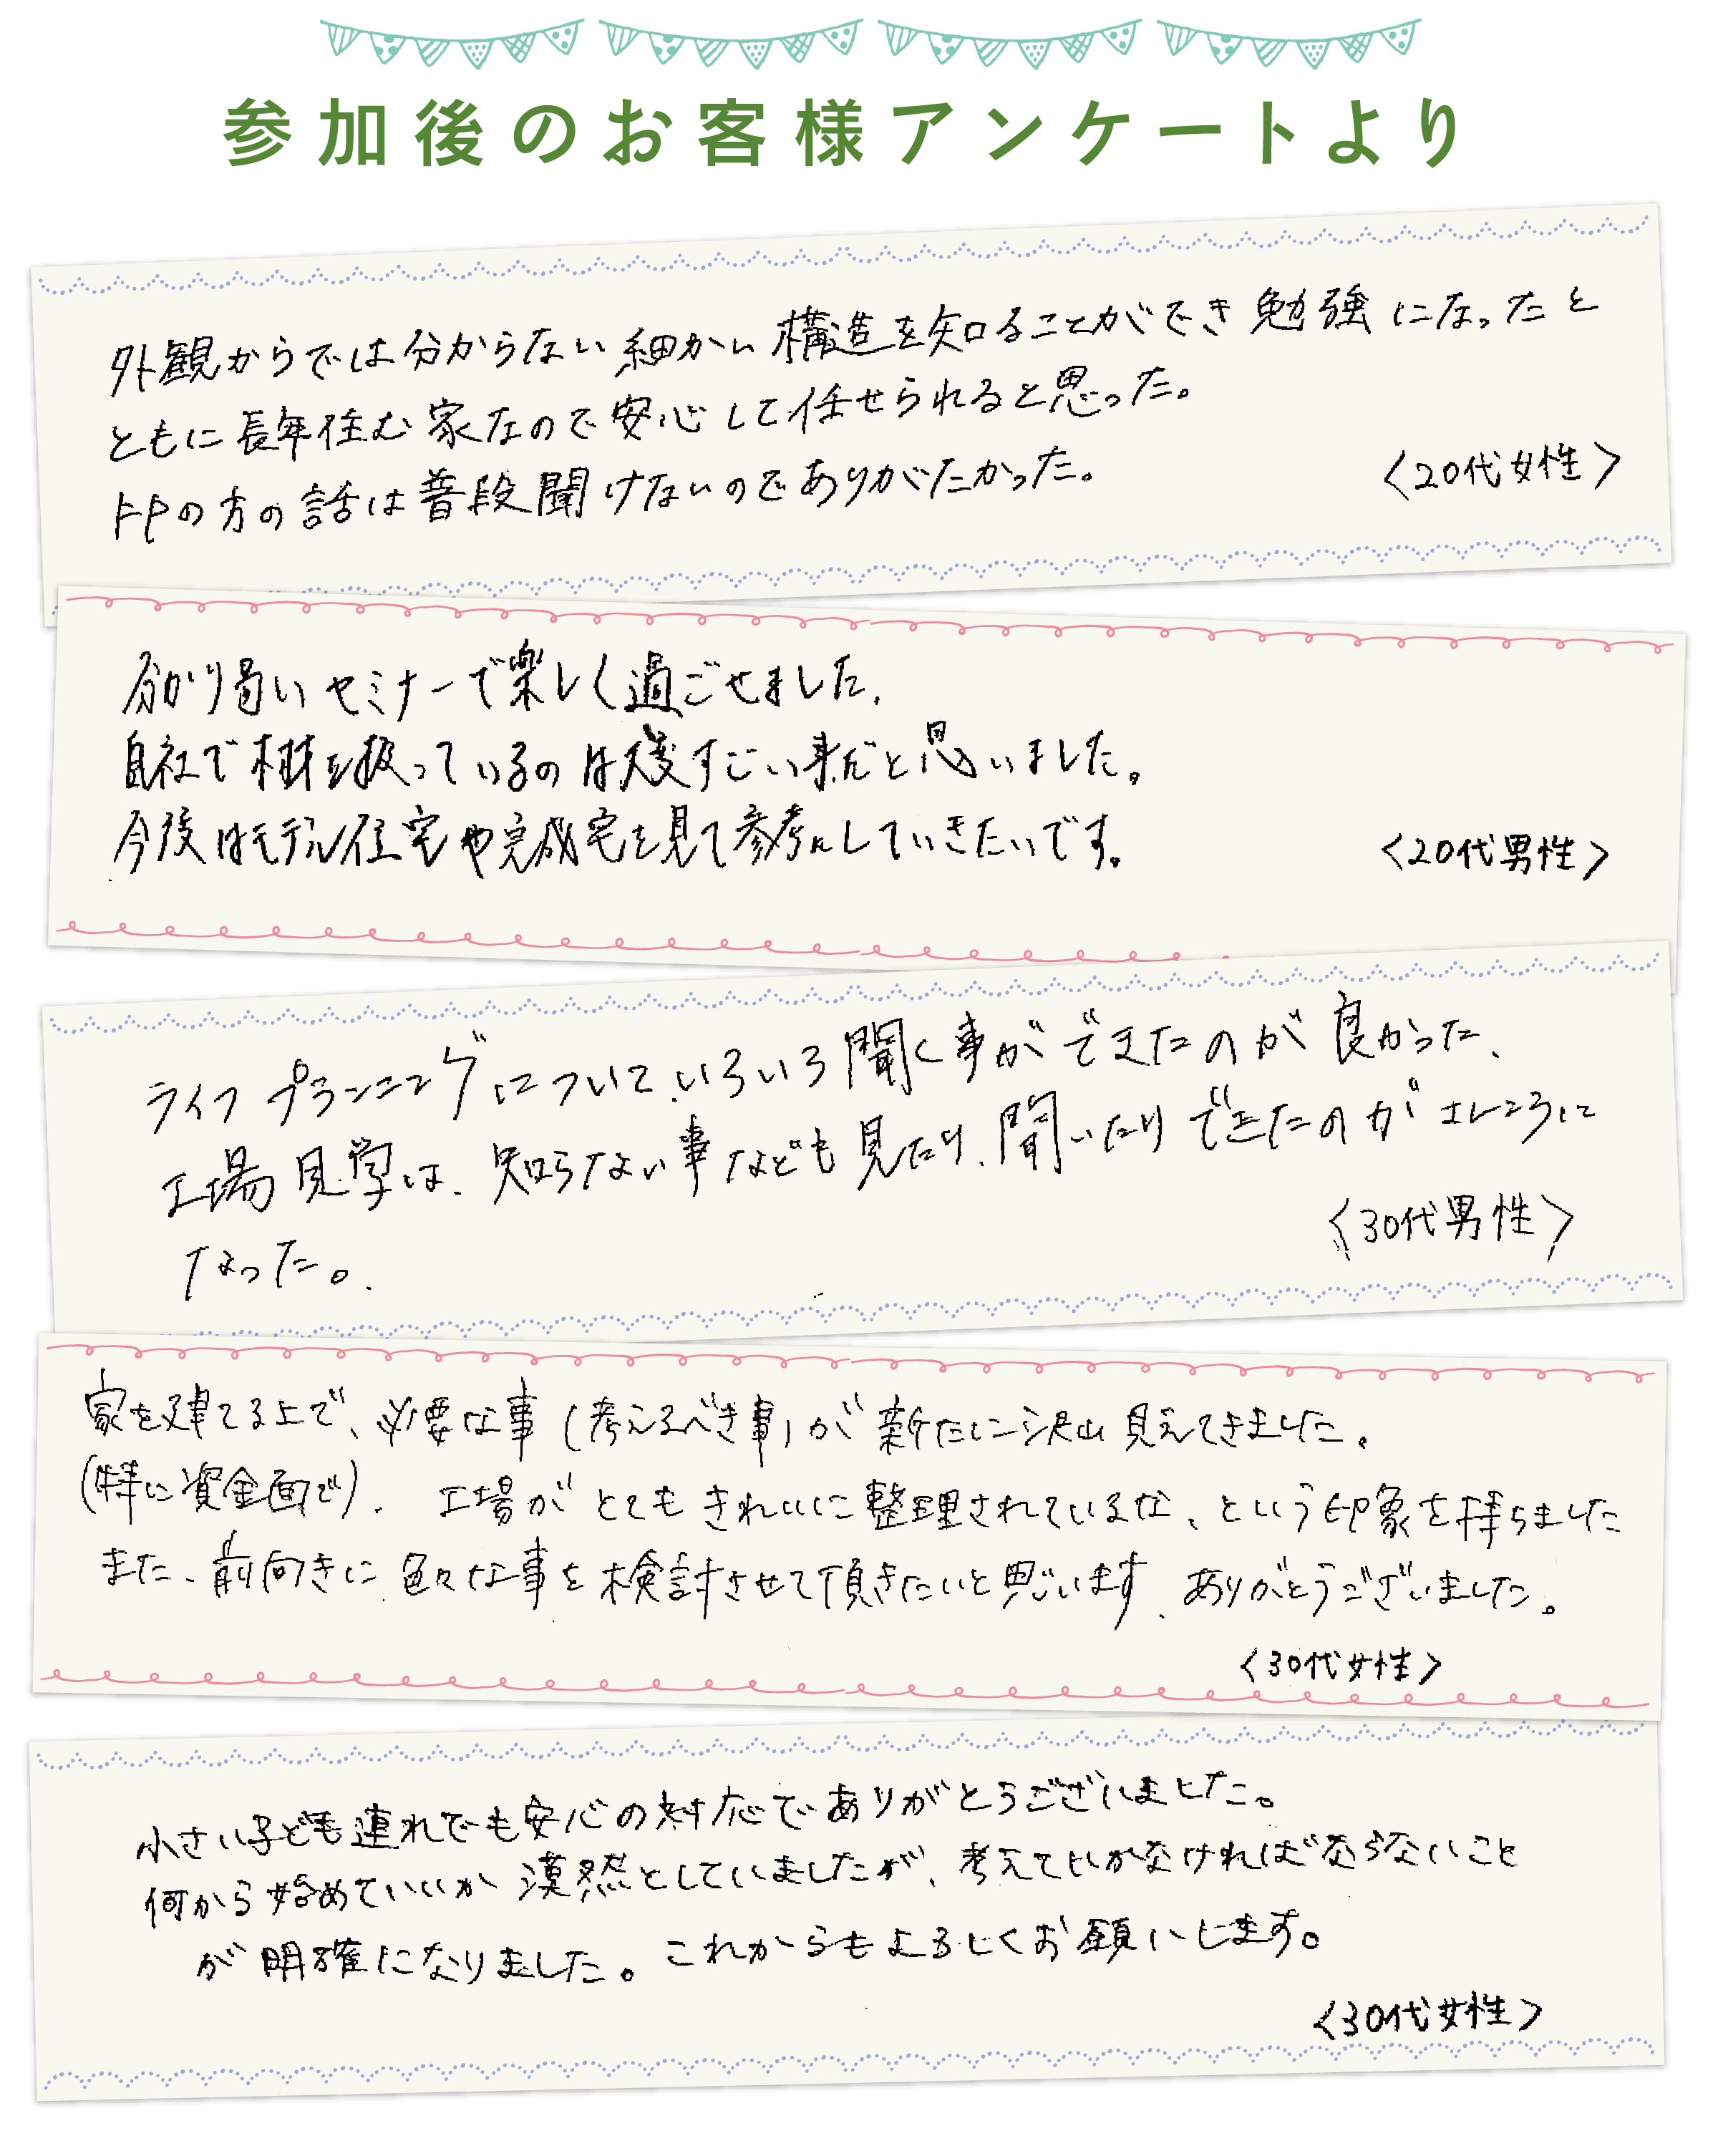 参加後のお客様アンケートより
外観からでは分からない細かい構造を知ることができ勉強になったと
ともに長年住む家なので安心して任せられると思った。
FPの方の話は普段聞けないのでありがたかった。
〈20代女性〉
分かり易いセミナーで楽しく過ごせました。
自社で木材を扱っているのは大変すごい事だと思いました。
今後はモデル住宅や完成宅を見て参考にしていきたいです。
〈20代男性〉
ライフプランニングについて、いろいろ聞く事ができたのが良かった、
工場見学は、知らない事なども見たり、聞いたりできたのが
なった。
〈30代男性〉
家を建てる上で、必要な事(考えるべき事)が新たに沢山見えてきました。
(特に資金面で). 工場がとてもきれいに整理されているな、という印象を持ちました
また、前向きに色々な事を検討させて頂きたいと思います、ありがとうございました。
〈30代女性〉
小さい子ども連れでも安心の対応でありがとうございました。
何から始めていいか漠然としていましたが、考えていかなければならないこと
が明確になりました。これからもよろしくお願いします。
〈30代女性〉